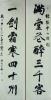 滿堂花醉三千客
一劍霜寒四十州